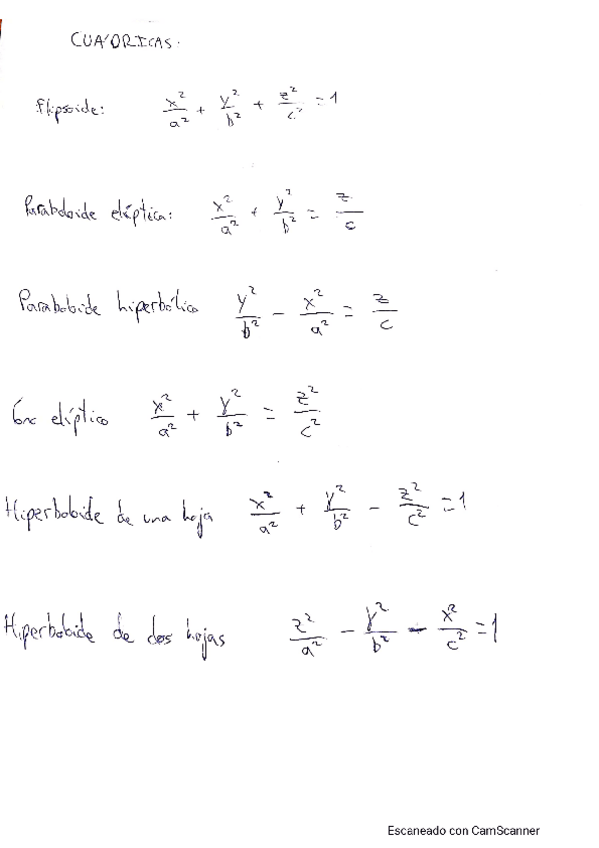 CUÁDRICAS.
Elipsoide: x²/a² + y²/b² + z²/c² = 1
Paraboloide elíptica: x²/a² + y²/b² = z/c
Paraboloide hiperbólico y²/b² - x²/a² = z/c
Cono elíptico x²/a² + y²/b² = z²/c²
Hiperboloide de una hoja x²/a² + y²/b² - z²/c² = 1
Hiperboloide de dos hojas z²/a² - y²/b² - x²/c² = 1
Escaneado con CamScanner